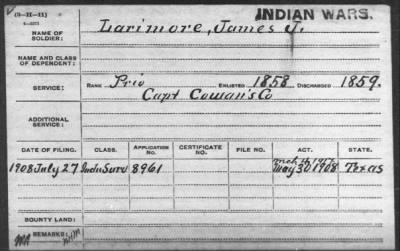 (3-II-11)
INDIAN WARS.
NAME OF SOLDIER: Larimore, James J.
NAME AND CLASS OF DEPENDENT:
SERVICE: RANK Priv ENLISTED 1858 DISCHARGED 1859.
Capt Cowan's Co
ADDITIONAL SERVICE:
DATE OF FILING. CLASS. APPLICATION NO. CERTIFICATE NO. FILE NO. ACT. STATE.
Mch 4, 1917
1908 July 27 Indn Surv 8961 May 30 1908 Texas
BOUNTY LAND:
REMARKS: